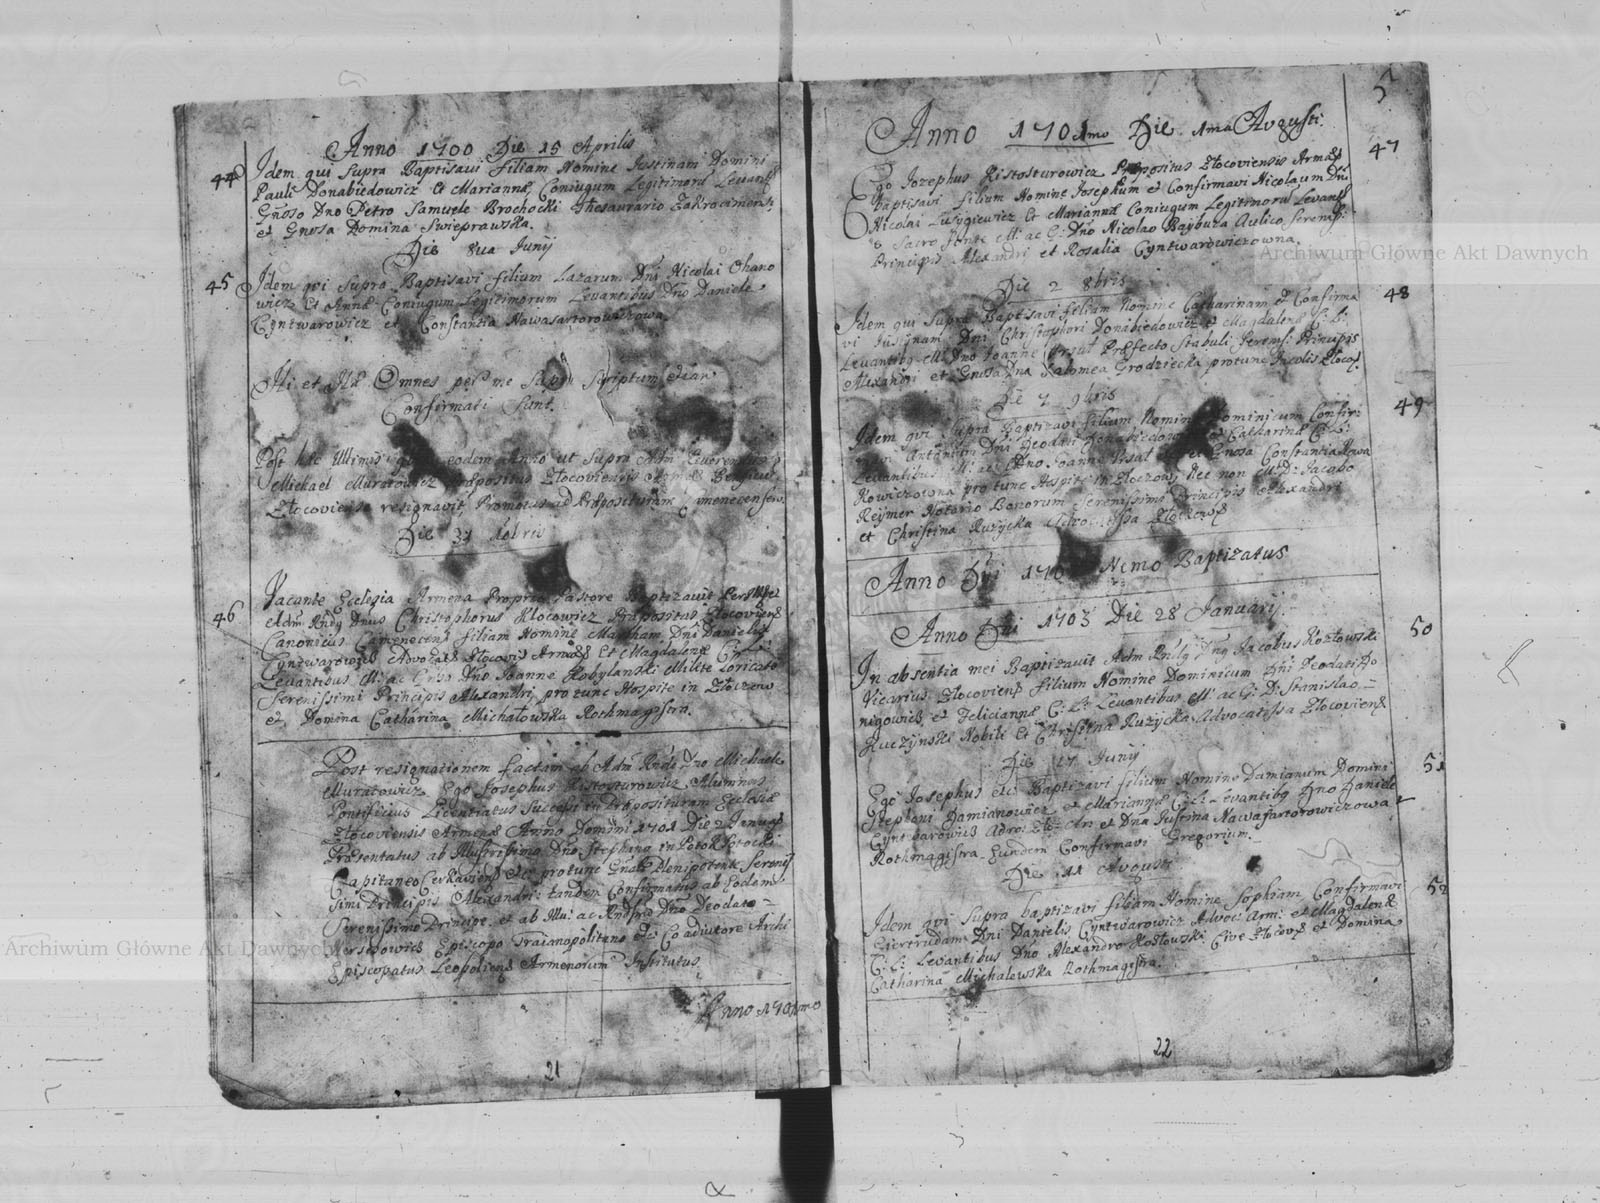 Anno 1700 Die 15 Aprilis
44 Idem qui supra Baptisavi filiam Nomine Iustinam Domini
Pauli Donabiedowicz Et Mariannæ Coniugum Legitimoru Levante
Gnoso Dno Petro Samuele Brochocki Thesaurario Zakrocimens,
et Gnosa Domina Swieprawska.
Die 8va Junij
45 Idem qvi Supra Baptisavi filium Lazarum Dni Nicolai Ohano
wicz Et Annæ Coniugum Legitimorum Levantibus Dno Daniele
Cyntwarowicz et Constantia Nawasartorowiczowa
Hi et Hæ Omnes per me Supra Scriptum etiam
Confirmati Sunt.
Post hæc Ultimis eodem Anno ut Supra Adm Reverendus
Michael Muratowicz Præpositus Złocoviensis Armen
Złocoviense resignavit Promotus ad Præposituram Camenecensem.
Die 31 Xbris
46 Vacante Ecclesia Armena Proprio Pastore Baptizavit Perillust
et Adm Rndg Dnus Christophorus Klocowicz Præpositus Złocoviens
Canonicus Camenecens filiam Nomine Martham Dni Danielis
Cyntwarowicz Advocati Złocovis Armens Et Magdalenæ C: L:
Levantibus M: ac Gnso Dno Ioanne Kobylanski Milite Loricato
Serenissimi Principis Alexandri, pro tunc Hospite in Złoczow
et Domina Catharina Michałowska Rothmagistra.
Post resignationem factam ab Adm Rndo Dno Michaele
Muratowicz Ego Iosephus Ristosturowicz Alumnus
Pontificius Licentiatus Successi in Præposituram Ecclesiæ
Złocoviensis Armenæ Anno Domini 1701 Die 2 Ianuar
Præsentatus ab Illustrissimo Dno Stephano in Potok Potocki
Capitaneo Cerkaviens etc pro tunc Gnali Plenipotente Serenis
simi Principis Alexandri: tandem Confirmatus ab Eodem
Serenissimo Principe. et ab Illu: ac Rndsmo Dno Deodato
Nersesowicz Episcopo Traianopolitano etc Coadiutore Archi
Episcopatus Leopoliens Armenorum Institutus
Anno 1701mo
21
5
Anno 1701mo Die 1ma Avgusti
47 Ego Iozephus Ristosturowicz Præpositus Złocoviensis Armens
Baptisavi filium Nomine Iosephum et Confirmavi Nicolaum Dni
Nicolai Lusygiewicz Et Mariannæ Coniugum Legitimoru Levans
e Sacro fonte M: ac G: Dno Nicolao Baybuza Avlico Serenis:
Principis Alexandri et Rosalia Cyntwarowiczowna.
Die 2 8bris
48 Idem qui supra Baptisavi filiam Nomine Catharinam et Confirma
vi Susignam Dni Christophori Donabiedowicz et Magdalenæ C: L:
Levantibg M: Dno Ioanne Ursul Præfecto Stabuli Serenis: Principis
Alexandri et Gnosa Dna Salomea Grodziecka protunc Incolis Złocov.
Die 7 9bris
49 Idem qvi Supra Baptizavi filium Nomine Dominicum Confir:
Antonium Dni Deodati Donabiedow et Catharinæ C: L:
Levantibus M: ac G: Dno Ioanne Ursul et Gnosa Constantia Nawa
Rowiczowna pro tunc Hospite in Złoczow, Nec non M: D: Iacobo
Reymer Notario Bonorum Serenissimi Principis Alexandri
et Christina Ruzycka Advocatissa Złoczows
Anno Dni 170 Nemo Baptizatus
Anno Dni 1703 Die 28 Januarij
50 In absentia mei Baptizavit Adm Rndg Dng Iacobus Kozłowski
Vicarius Złocoviens filium Nomine Dominicum Dni Deodati Do
nigowicz et Felicianæ C: L: Levantibus M: ac G: D: Stanislao
Ruczynski Nobili Et Christina Ruzycka Advocatissa Złocoviens
Die 17 Junij
51 Ego Iosephus etc Baptizavi filium Nomine Damianum Domini
Stephani Damianowicz et Mariannæ C: L: Levantibg Dno Daniele
Cyntwarowicz Advo: Zło: Ar: et Dna Iustina Nawasartorowiczowa
Rothmagistra. Eundem Confirmavi Gregorium.
Die 11 Avgusti
52 Idem qvi Supra Baptizavi filiam Nomine Sophiam Confirmavi
Giertrudam Dni Danielis Cyntwarowicz Advoc: Arm: et Magdalenæ
C: L: Levantibus Dno Alexandro Kozłowski Cive Złocovs et Domina
Catharina Michalewska Rothmagistra.
22
Archiwum Główne Akt Dawnych
Archiwum Główne Akt Dawnych